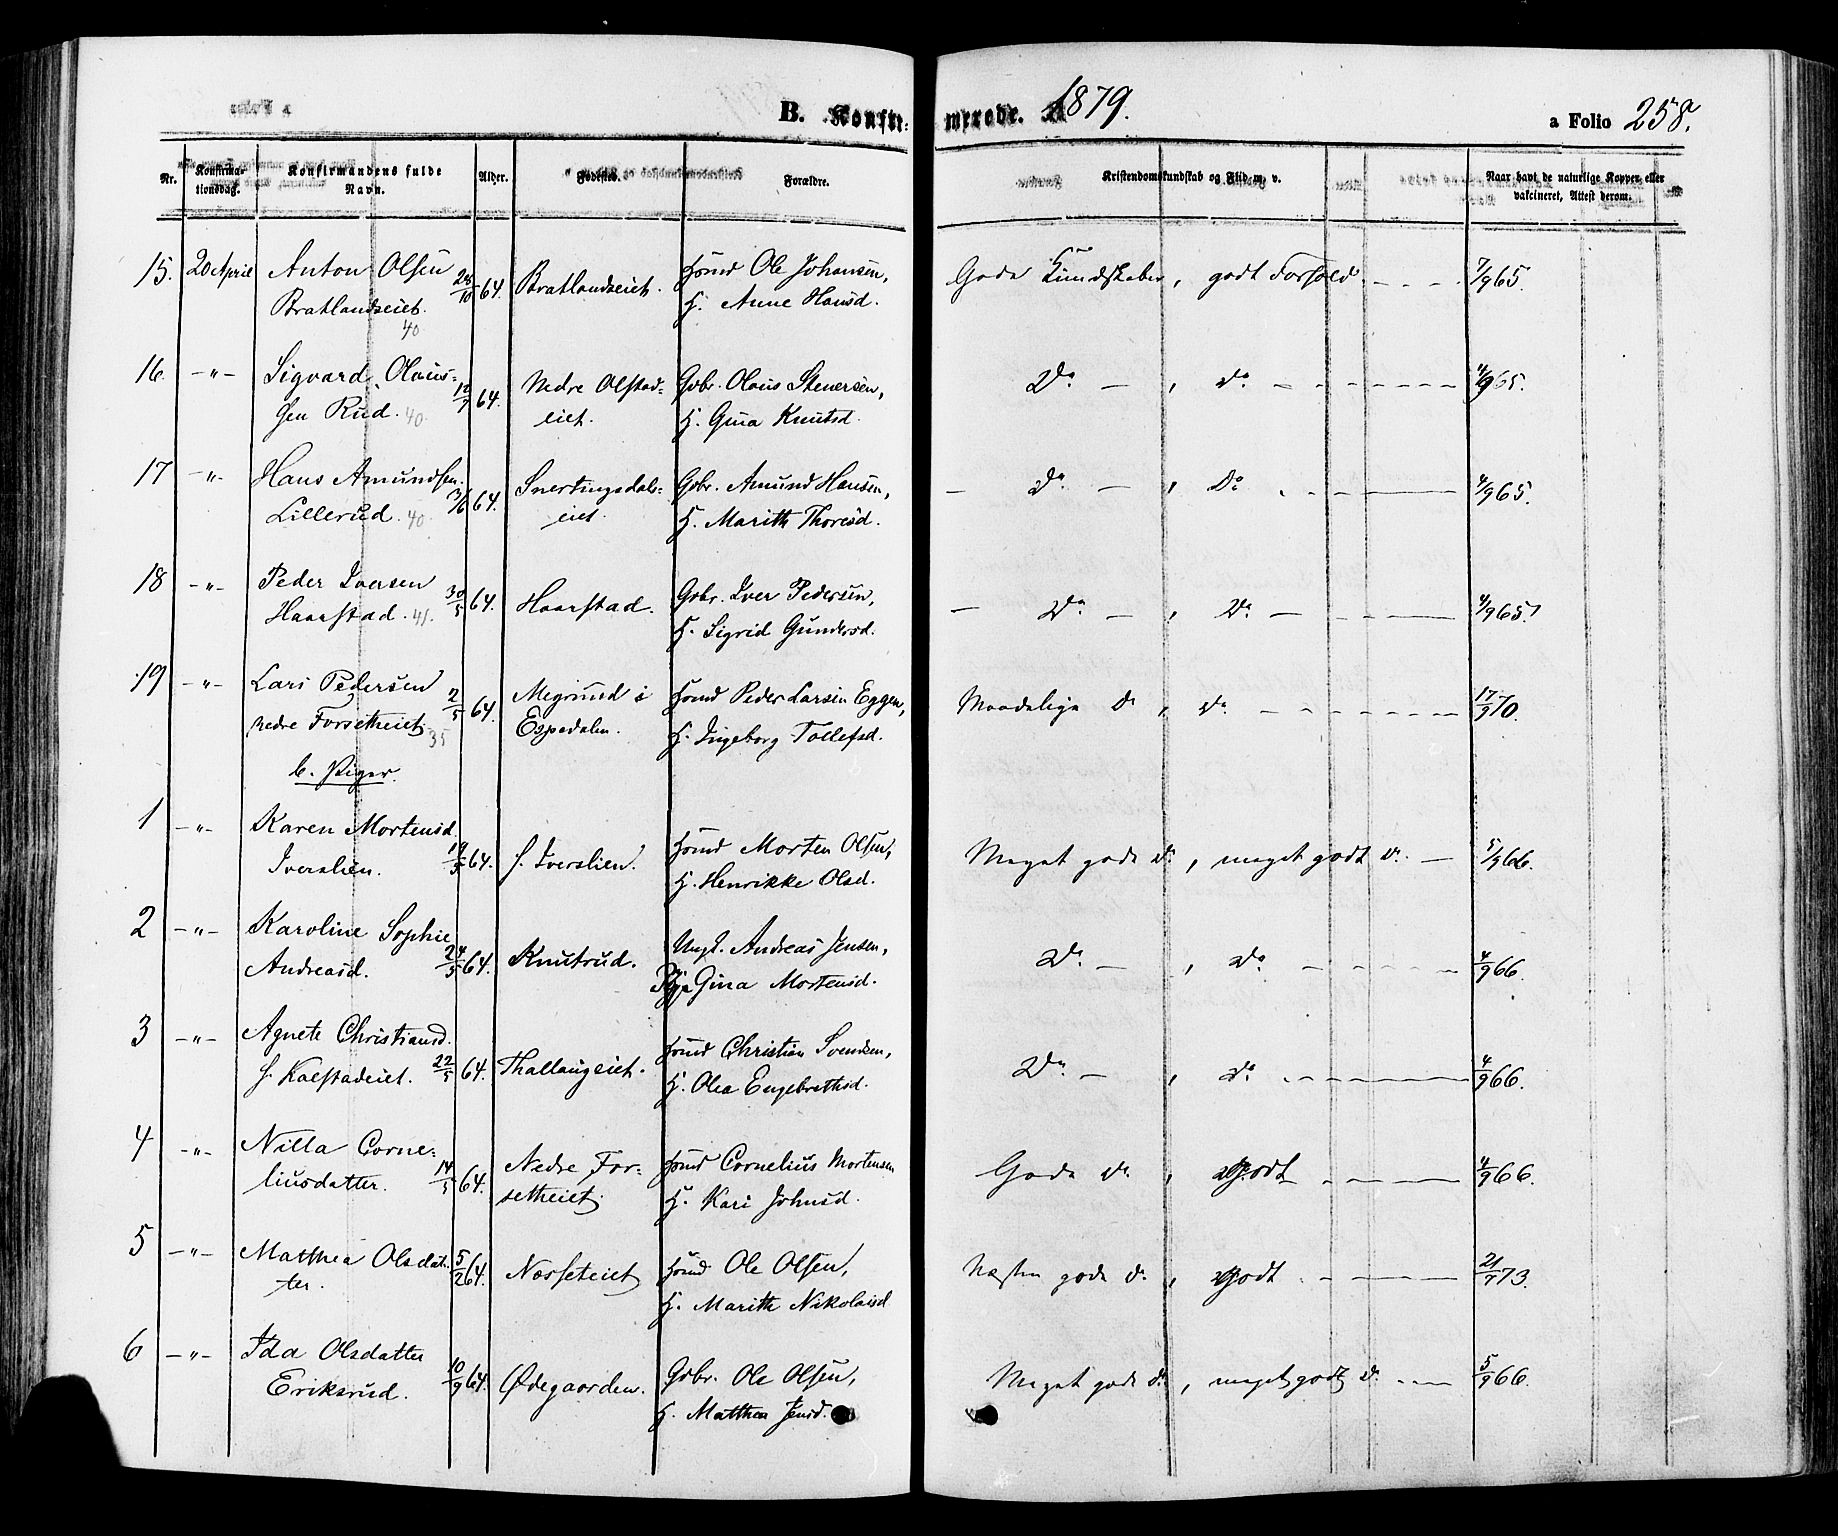 B. Konfirmerede. 1879.
a Folio 258.
Nr. Konfirmationsdag. Konfirmandens fulde Navn. Alder. Fødested. Forældre. Kristendomskundskab og Flid m. v. Naar havt de naturlige Kopper eller vakcineret, Attest derom.
15. 20 April Anton Olsen 28/10 64. Bratlandseiet. Hsmd Ole Johansen, Gode Kundskaber, godt Forhold. 7/9 65.
Bratlandseiet. 40 H. Anne Hansd.
16. -"- Sigvard Olaus- 12/7 64. Nedre Olstad- Gbr. Olaus Stenersen, Do - , do 4/9 65.
sen Rud. 40. eiet. H. Gina Knutsd.
17 -"- Hans Amundsen 3/6 64. Snertingsdals- Gbr. Amund Hansen, - Do - , Do 4/9 65.
Lillerud. 40. eiet. H. Marith Thoresd.
18 -"- Peder Iversen 30/5 64. Haarstad. Gbr. Iver Pedersen, - Do - , Do - 4/9 65.
Haarstad. 41. H. Sigrid Gundersd.
19 -"- Lars Pedersen 2/5 64. Megrund i Hsmd Peder Larsen Eggen, Maadelige do , do 17/9 70.
nedre Forsetheiet. 35 Espedalen. H. Ingeborg Tollefsd.
b. Piger.
1 -"- Karen Mortensd. 19/5 64. s. Iverslien. Hsmd Morten Olsen, Meget gode do , meget godt do. 5/9 66.
Iverslien. H. Henrikke Olsd.
2 -"- Karoline Sophie 24/5 64. Knutrud. Ungk. Andreas Jensen, Do - , do 4/9 66.
Andreasd. Pige Gina Mortensd.
3 -"- Agnete Christiansd. 22/5 64. Thallaugeiet. Hsmd Christian Svendsen, Do - , do 4/9 66.
s. Kalstadeiet. H. Olea Engebrethsd.
4 -"- Nilla Corne- 14/5 64. Nedre For- Hsmd Cornelius Mortensen Gode do , Godt 4/9 66.
liusdatter. setheiet. H. Kari Johnsd.
5 -"- Matthea Olsdat- 5/2 64. Norseteiet Hsmd Ole Olsen, Næsten gode do , godt 21/7 73.
ter. H. Marith Nikolaisd
6 -"- Ida Olsdatter 10/9 64. Ødegaarden. Gbr. Ole Olsen, Meget gode do , meget godt do 5/9 66.
Eriksrud. H. Matthea Jensd.